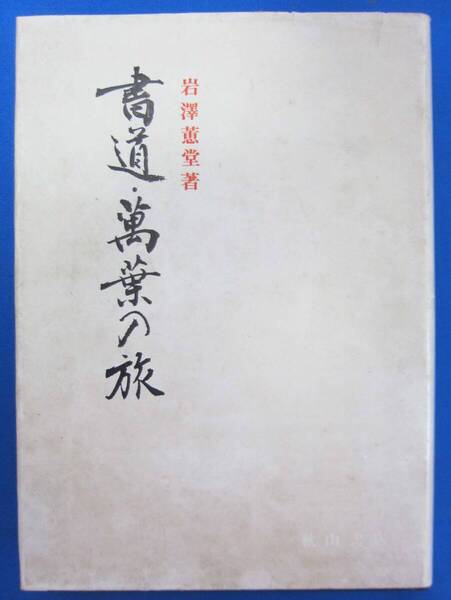 書道・萬葉の旅
岩澤蕙堂著